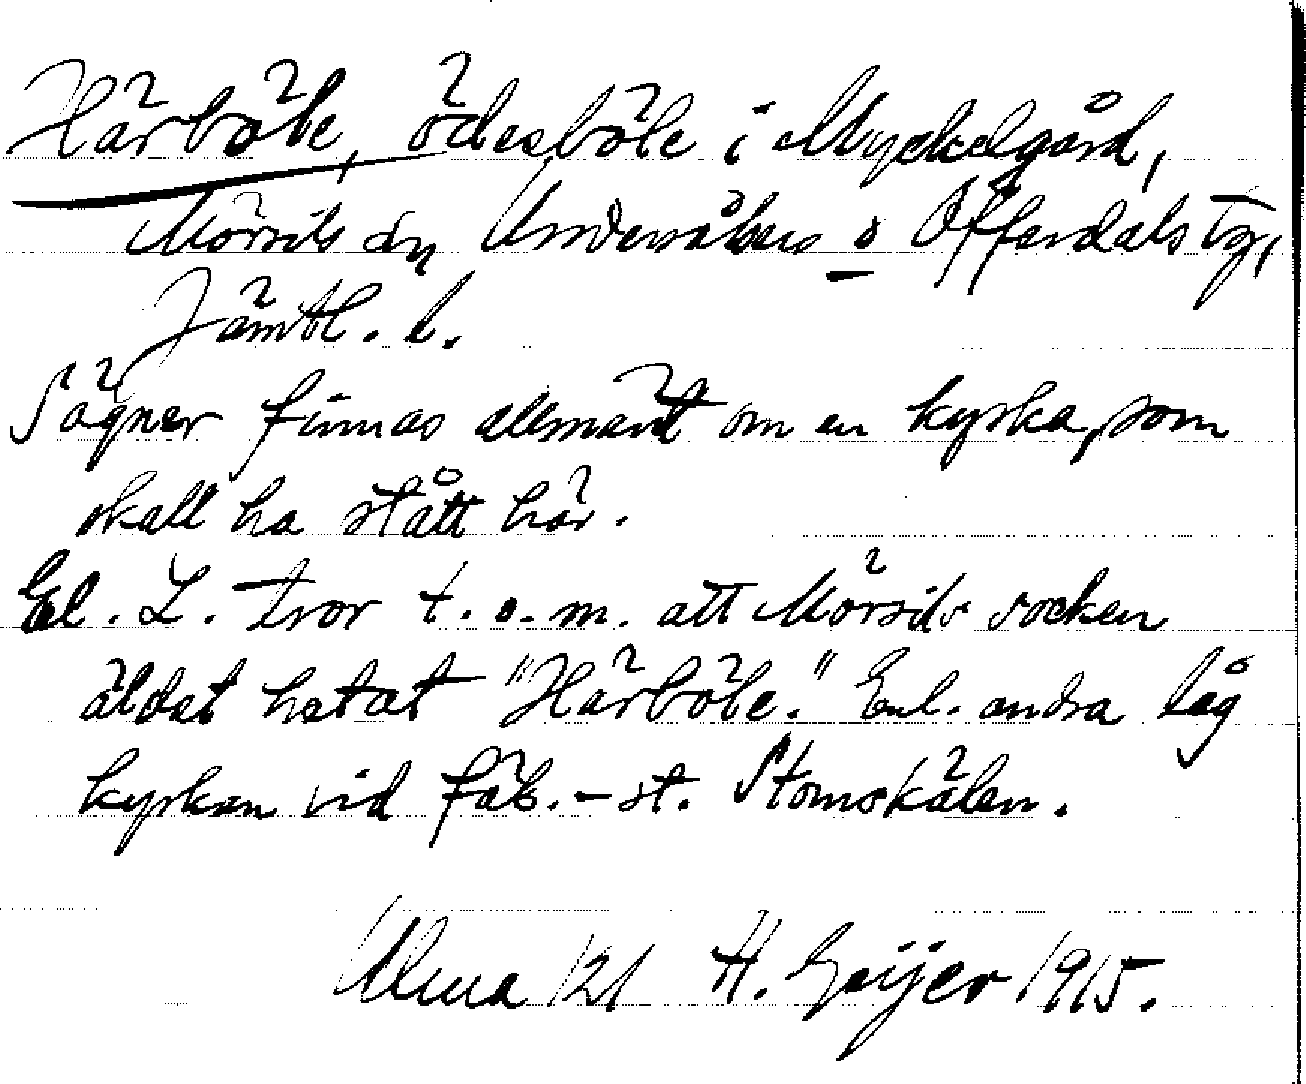 Härböle, ödesböle i Myckelgård,
Mörsils sn Undersåkers o Offerdals tg,
Jämtl. l.
Sägner finnas allmänt om en kyrka, som
skall ha stått här.
El. L. tror t. o. m. att Mörsils socken
äldst hetat "Härböle." Enl. andra låg
kyrkan vid fäb.-st. Stomskälen.
Alma 121 H. Geijer 1915.